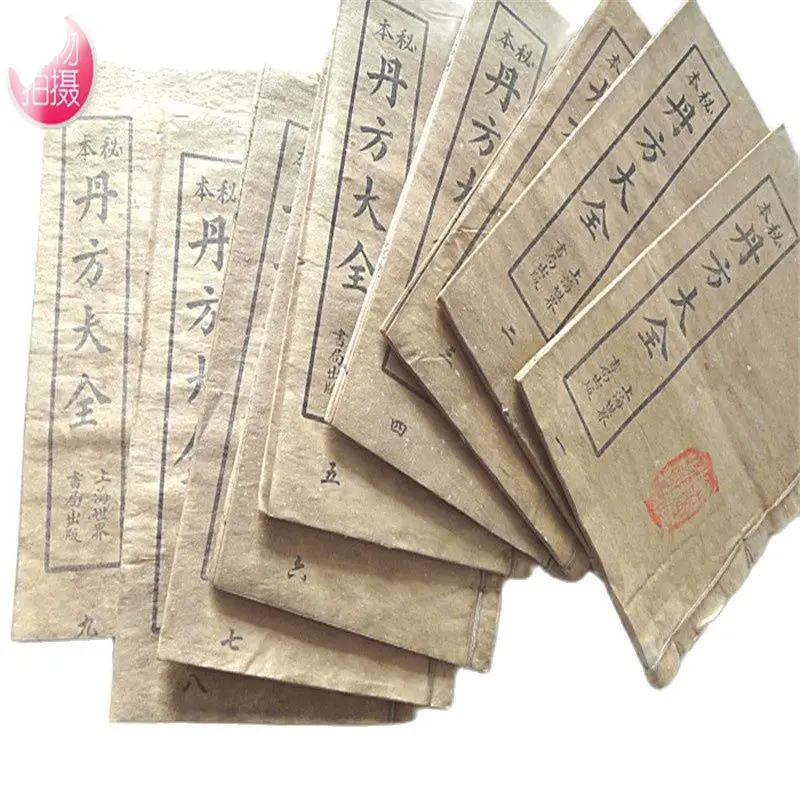 物
拍摄
秘本
丹方大全
上海世界
書局出版
一
秘本
丹方大全
上海世界
書局出版
二
三
秘本
丹方大
四
秘本
丹方大全
書局出版
五
六
七
秘本
丹方
八
秘本
丹方大全
上海世界
書局出版
九